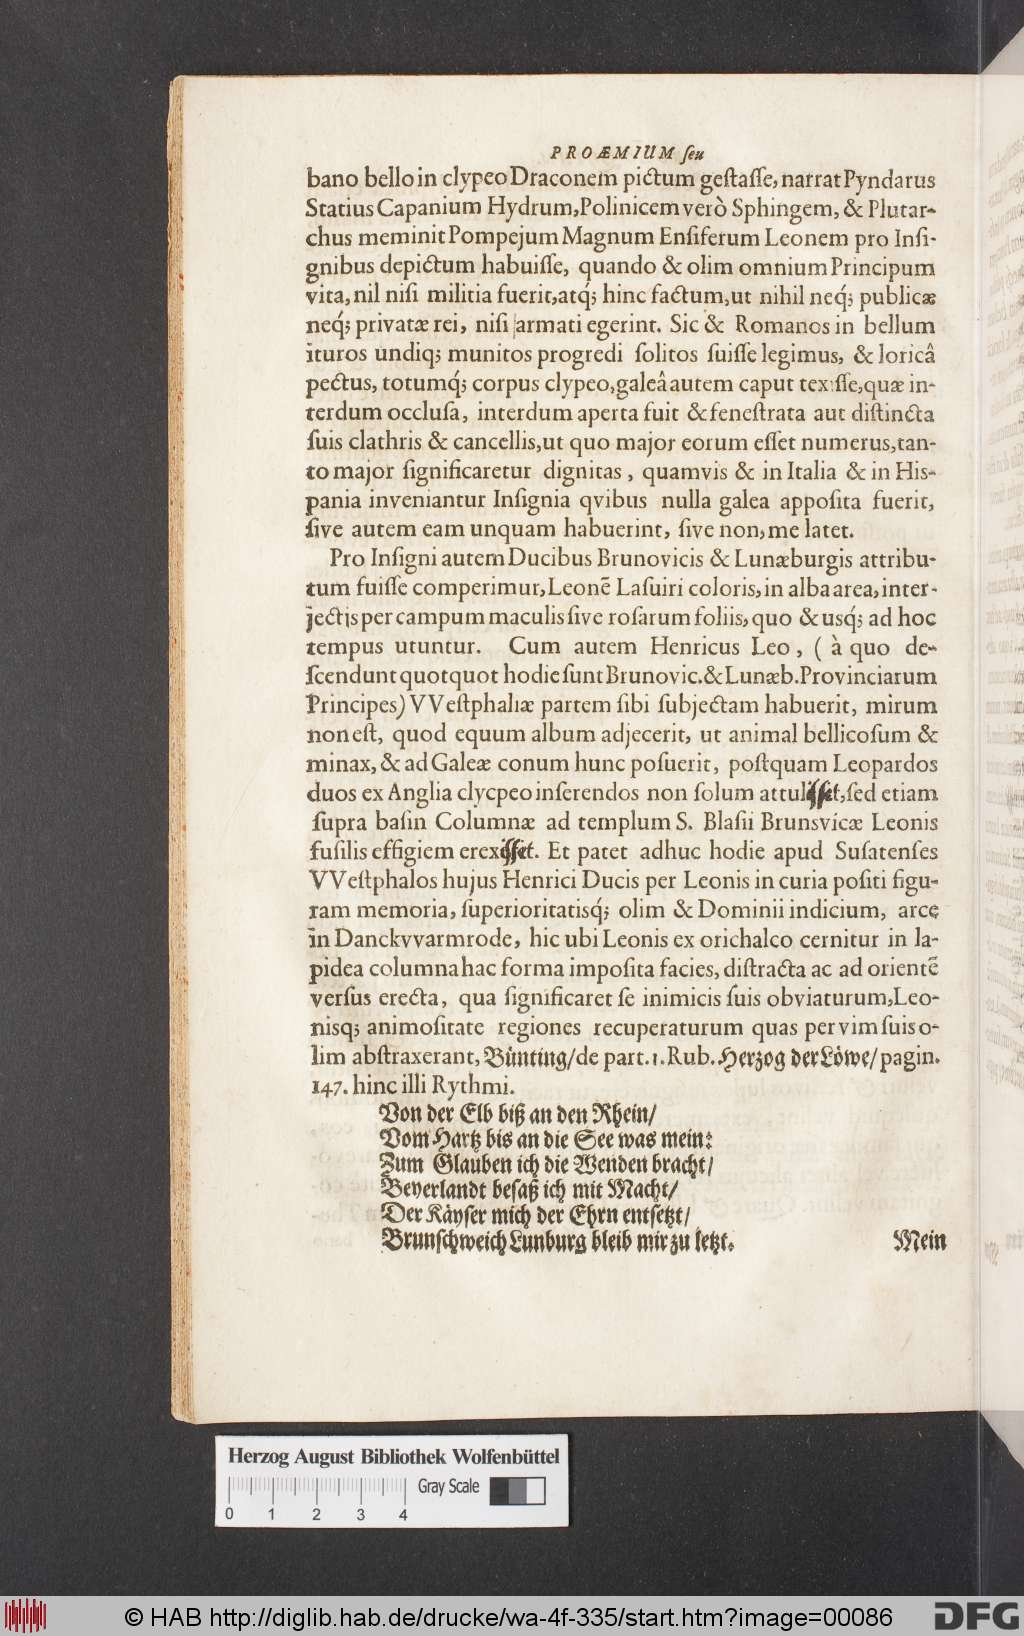 PROÆMIUM ſeu
bano bello in clypeo Draconem pictum geſtaſſe, narrat Pyndarus
Statius Capanium Hydrum, Polinicem verò Sphingem, & Plutar-
chus meminit Pompejum Magnum Enſiferum Leonem pro Inſi-
gnibus depictum habuiſſe, quando & olim omnium Principum
vita, nil niſi militia fuerit, atq́; hinc factum, ut nihil neq́; publicæ
neq́; privatæ rei, niſi armati egerint. Sic & Romanos in bellum
ituros undiq; munitos progredi ſolitos fuiſſe legimus, & loricâ
pectus, totumq́; corpus clypeo, galeâ autem caput texiſſe, quæ in-
terdum occluſa, interdum aperta fuit & feneſtrata aut diſtincta
ſuis clathris & cancellis, ut quo major eorum eſſet numerus, tan-
to major ſignificaretur dignitas, quamvis & in Italia & in His-
pania inveniantur Inſignia qvibus nulla galea appoſita fuerit,
ſive autem eam unquam habuerint, ſive non, me latet.
Pro Inſigni autem Ducibus Brunovicis & Lunæburgis attribu-
tum fuiſſe comperimur, Leonē Laſuiri coloris, in alba area, inter-
jectis per campum maculis ſive roſarum foliis, quo & usq́; ad hoc
tempus utuntur. Cum autem Henricus Leo, (à quo de-
ſcendunt quotquot hodie ſunt Brunovic. & Lunæb. Provinciarum
Principes) VVeſtphaliæ partem ſibi ſubjectam habuerit, mirum
non eſt, quod equum album adjecerit, ut animal bellicoſum &
minax, & ad Galeæ conum hunc poſuerit, poſtquam Leopardos
duos ex Anglia clycpeo inſerendos non ſolum attuliſſet, ſed etiam
ſupra baſin Columnæ ad templum S. Blaſii Brunsvicæ Leonis
fuſilis effigiem erexiſſet. Et patet adhuc hodie apud Suſatenſes
VVeſtphalos hujus Henrici Ducis per Leonis in curia poſiti figu-
ram memoria, ſuperioritatisq́; olim & Dominii indicium, arce
in Danckvvarmrode, hic ubi Leonis ex orichalco cernitur in la-
pidea columna hac forma impoſita facies, diſtracta ac ad orientē
verſus erecta, qua ſignificaret ſe inimicis ſuis obviaturum, Leo-
nisq; animoſitate regiones recuperaturum quas per vim ſuis o-
lim abſtraxerant, Bünting/ de part. 1. Rub. Herzog der Löwe/ pagin.
147. hinc illi Rythmi.
Von der Elb biß an den Rhein/
Vom Hartz bis an die See was mein:
Zum Glauben ich die Wenden bracht/
Beyerlandt beſaß ich mit Macht/
Der Käyſer mich der Ehrn entſetzt/
Brunſchweich Lunburg bleib mir zu letzt.
Mein
Herzog August Bibliothek Wolfenbüttel
Gray Scale
0 1 2 3 4
© HAB http://diglib.hab.de/drucke/wa-4f-335/start.htm?image=00086
DFG